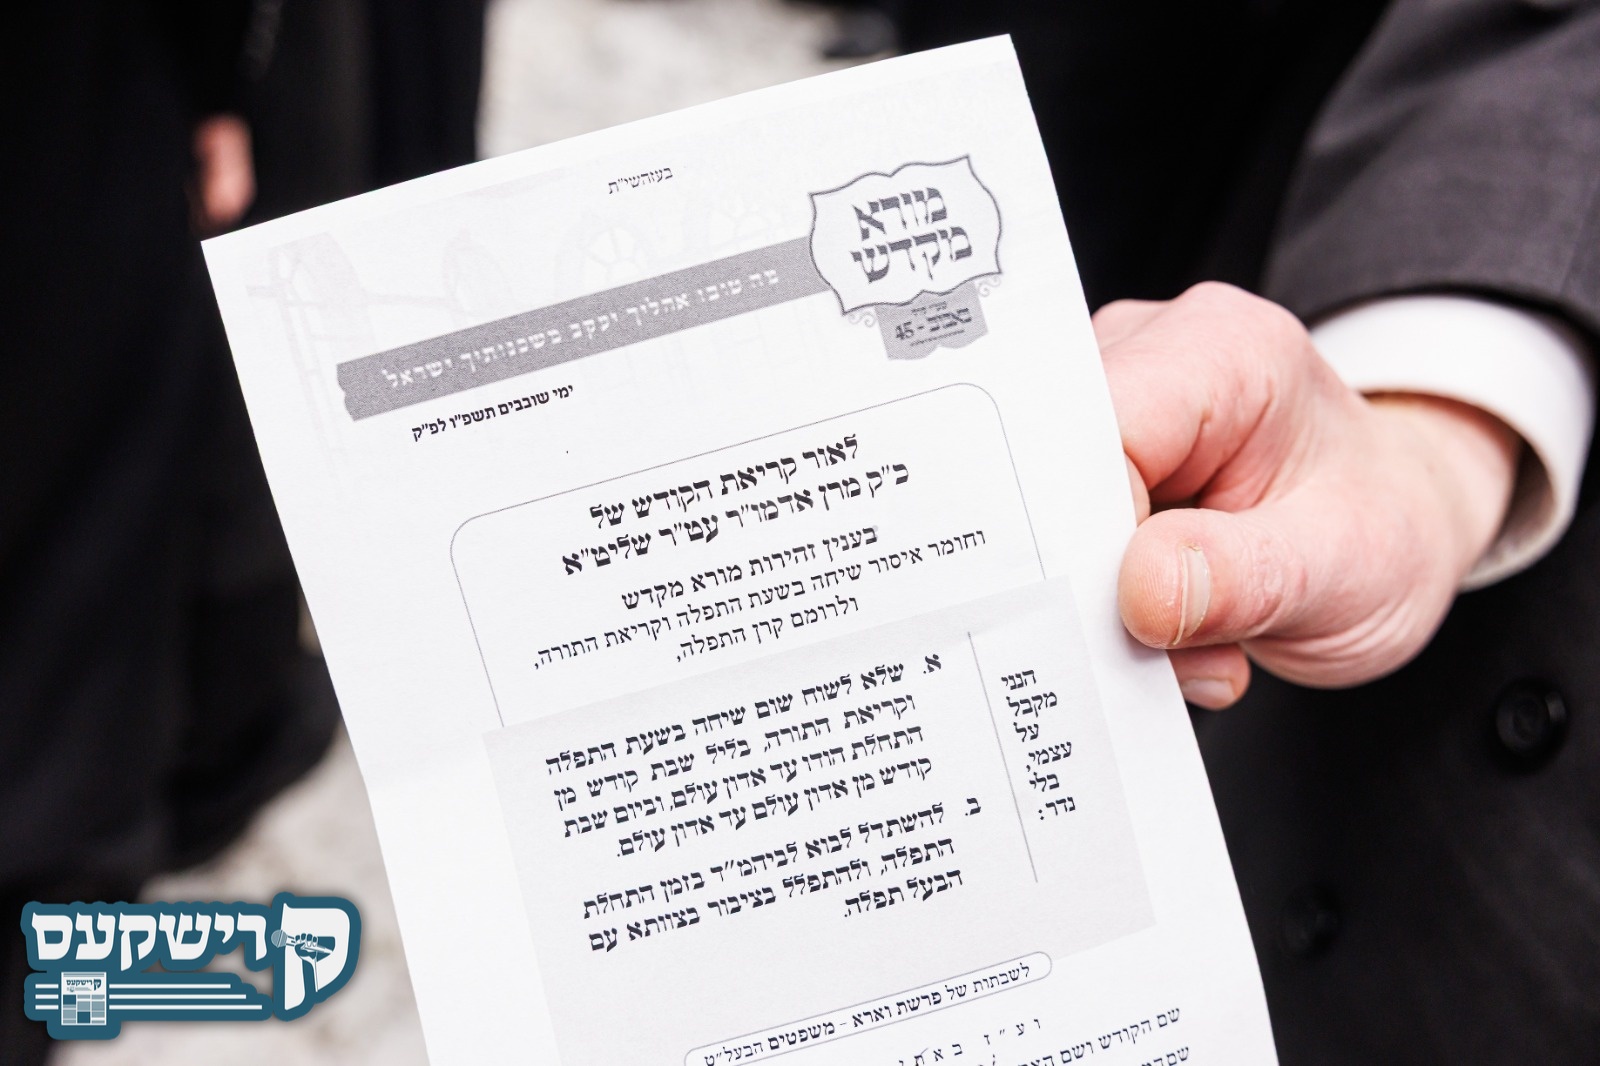 בעזהשי"ת
מורא
מקדש
באבוב - 45
מה טובו אהליך יעקב משכנותיך ישראל
ימי שובבים תשפ"ו לפ"ק
לאור קריאת הקודש של
כ"ק מרן אדמו"ר עט"ר שליט"א
בענין זהירות מורא מקדש
וחומר איסור שיחה בשעת התפלה וקריאת התורה,
ולרומם קרן התפלה,
הנני
מקבל
על
עצמי,
בלי
נדר:
א. שלא לשוח שום שיחה בשעת התפלה
וקריאת התורה, בליל שבת קודש מן
התחלת הודו עד אדון עולם, וביום שבת
קודש מן אדון עולם עד אדון עולם.
ב. להשתדל לבוא לביהמ"ד בזמן התחלת
התפלה, ולהתפלל בציבור בצוותא עם
הבעל תפלה.
לשבתות של פרשת וארא - משפטים הבעל"ט
ועז באתי
שם הקודש ושם
קרישקעס
קרישקעס